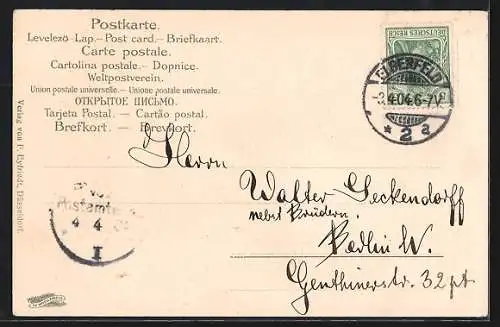 Postkarte.
Levelező-Lap.—Post card.—Briefkaart.
Carte postale.
Cartolina postale.—Dopnice.
Weltpostverein.
Union postale universelle.—Unione postale universale.
ОТКРЫТОЕ ПИСЬМО.
Tarjeta Postal.—Cartão postal.
Brefkort.—Brevkort.
DEUTSCHES REICH
ELBERFELD
-3.4.04.6-7V.
* 2 a
Verlag von F. Eyfriedt, Düsseldorf.
Herrn
Walter Seckendorff
nebst Brüdern.
Berlin W.
Genthinerstr. 32 pt
Postamt
4 4
I